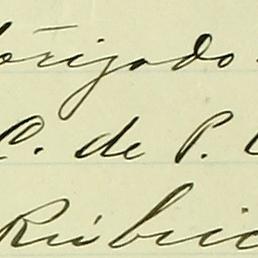 brigado
C. de P. C
Rubric